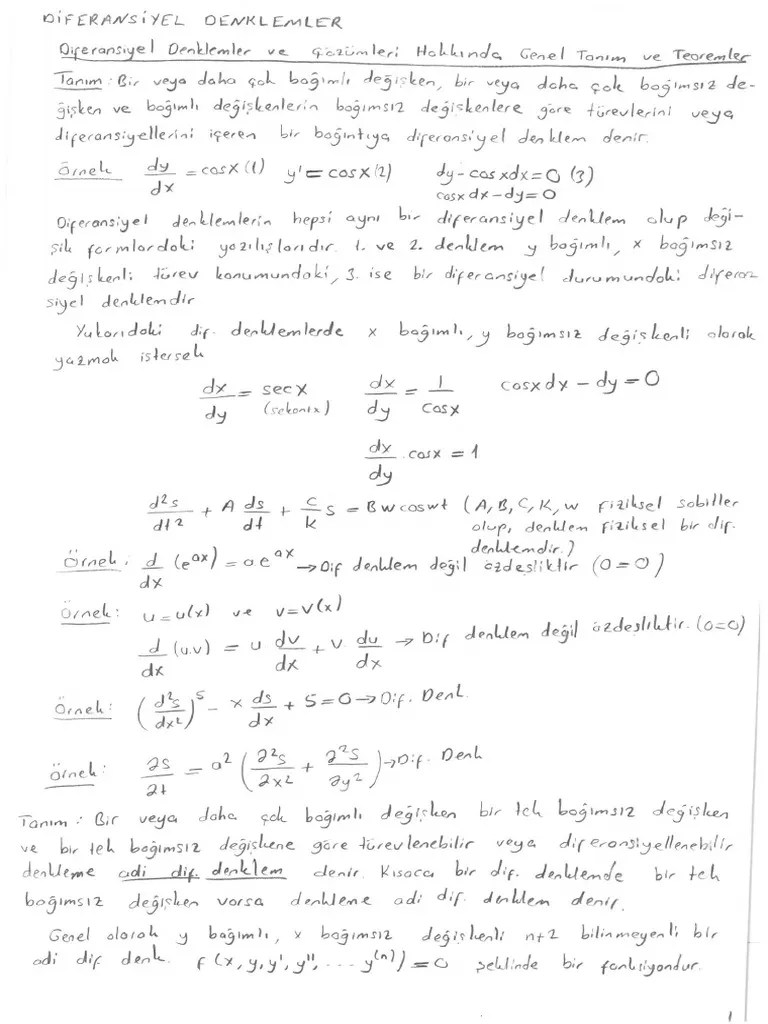 DİFERANSİYEL DENKLEMLER
Diferansiyel Denklemler ve Çözümleri Hakkında Genel Tanım ve Teoremler
Tanım: Bir veya daha çok bağımlı değişken, bir veya daha çok bağımsız de-
ğişken ve bağımlı değişkenlerin bağımsız değişkenlere göre türevlerini veya
diferansiyellerini içeren bir bağıntıya diferansiyel denklem denir.
Örnek dy/dx = cosx (1) y' = cosx (2) dy - cosxdx = 0 (3)
cosxdx - dy = 0
Diferansiyel denklemlerin hepsi aynı bir diferansiyel denklem olup deği-
şik formlardaki yazılışlarıdır. 1. ve 2. denklem y bağımlı, x bağımsız
değişkenli türev konumundaki, 3. ise bir diferansiyel durumundaki diferan
siyel denklemdir
Yukarıdaki dif. denklemlerde x bağımlı, y bağımsız değişkenli olarak
yazmak istersek
dx/dy = secx (sekantx) dx/dy = 1/cosx cosxdx - dy = 0
dx/dy . cosx = 1
d²s/dt² + A ds/dt + C/k s = Bwcoswt (A, B, C, K, w fiziksel sabitler
olup, denklem fiziksel bir dif.
denklemdir.)
Örnek: d/dx (e^ax) = ae^ax → Dif denklem değil özdeşliktir (0=0)
Örnek: u=u(x) ve v=v(x)
d/dx (u.v) = u dv/dx + v du/dx → Dif denklem değil özdeşliktir. (0=0)
Örnek: (d²s/dx²)^5 - x ds/dx + S = 0 → Dif. Denk.
Örnek: ∂s/∂t = a² (∂²s/∂x² + ∂²s/∂y²) → Dif. Denk
Tanım: Bir veya daha çok bağımlı değişken bir tek bağımsız değişken
ve bir tek bağımsız değişkene göre türevlenebilir veya diferansiyellenebilir
denkleme adi dif. denklem denir. Kısaca bir dif. denklemde bir tek
bağımsız değişken varsa denkleme adi dif. denklem denir.
Genel olarak y bağımlı, x bağımsız değişkenli n+2 bilinmeyenli bir
adi dif denk. f(x, y, y', y'', ... y^(n)) = 0 şeklinde bir fonksiyondur.
1